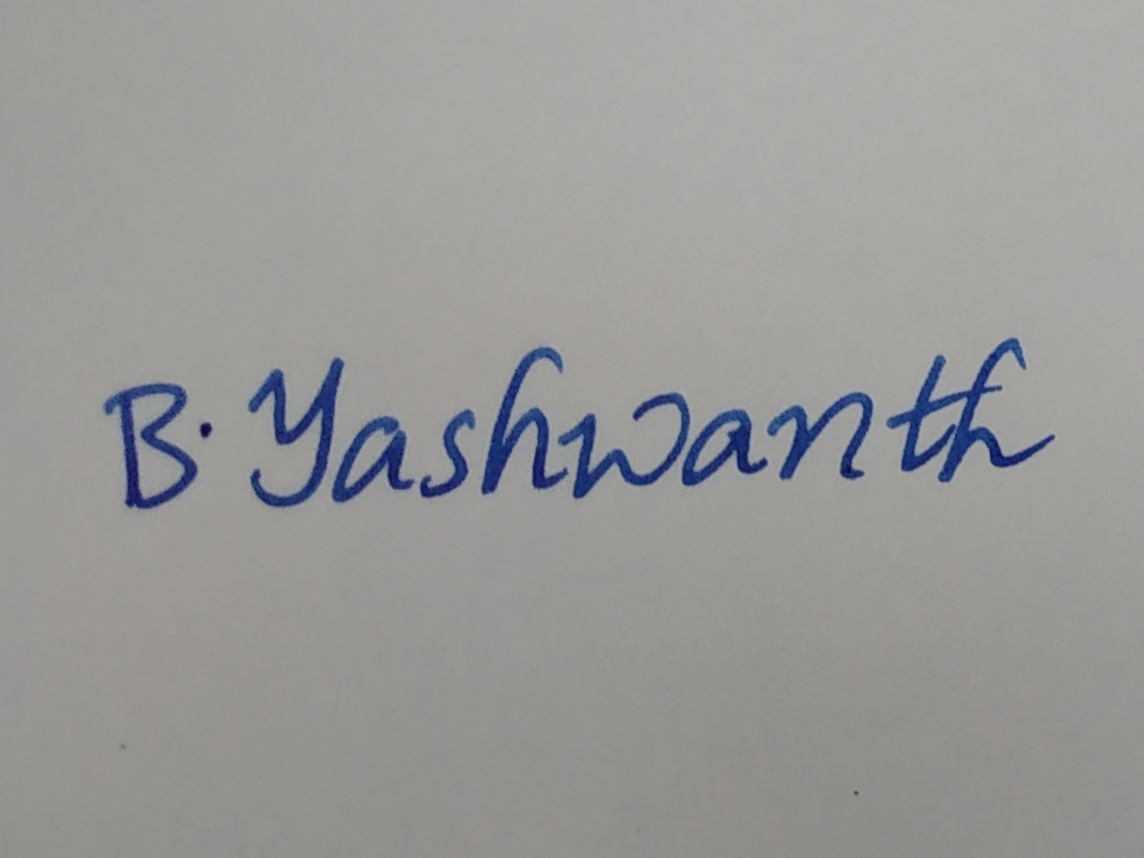 B. Yashwanth